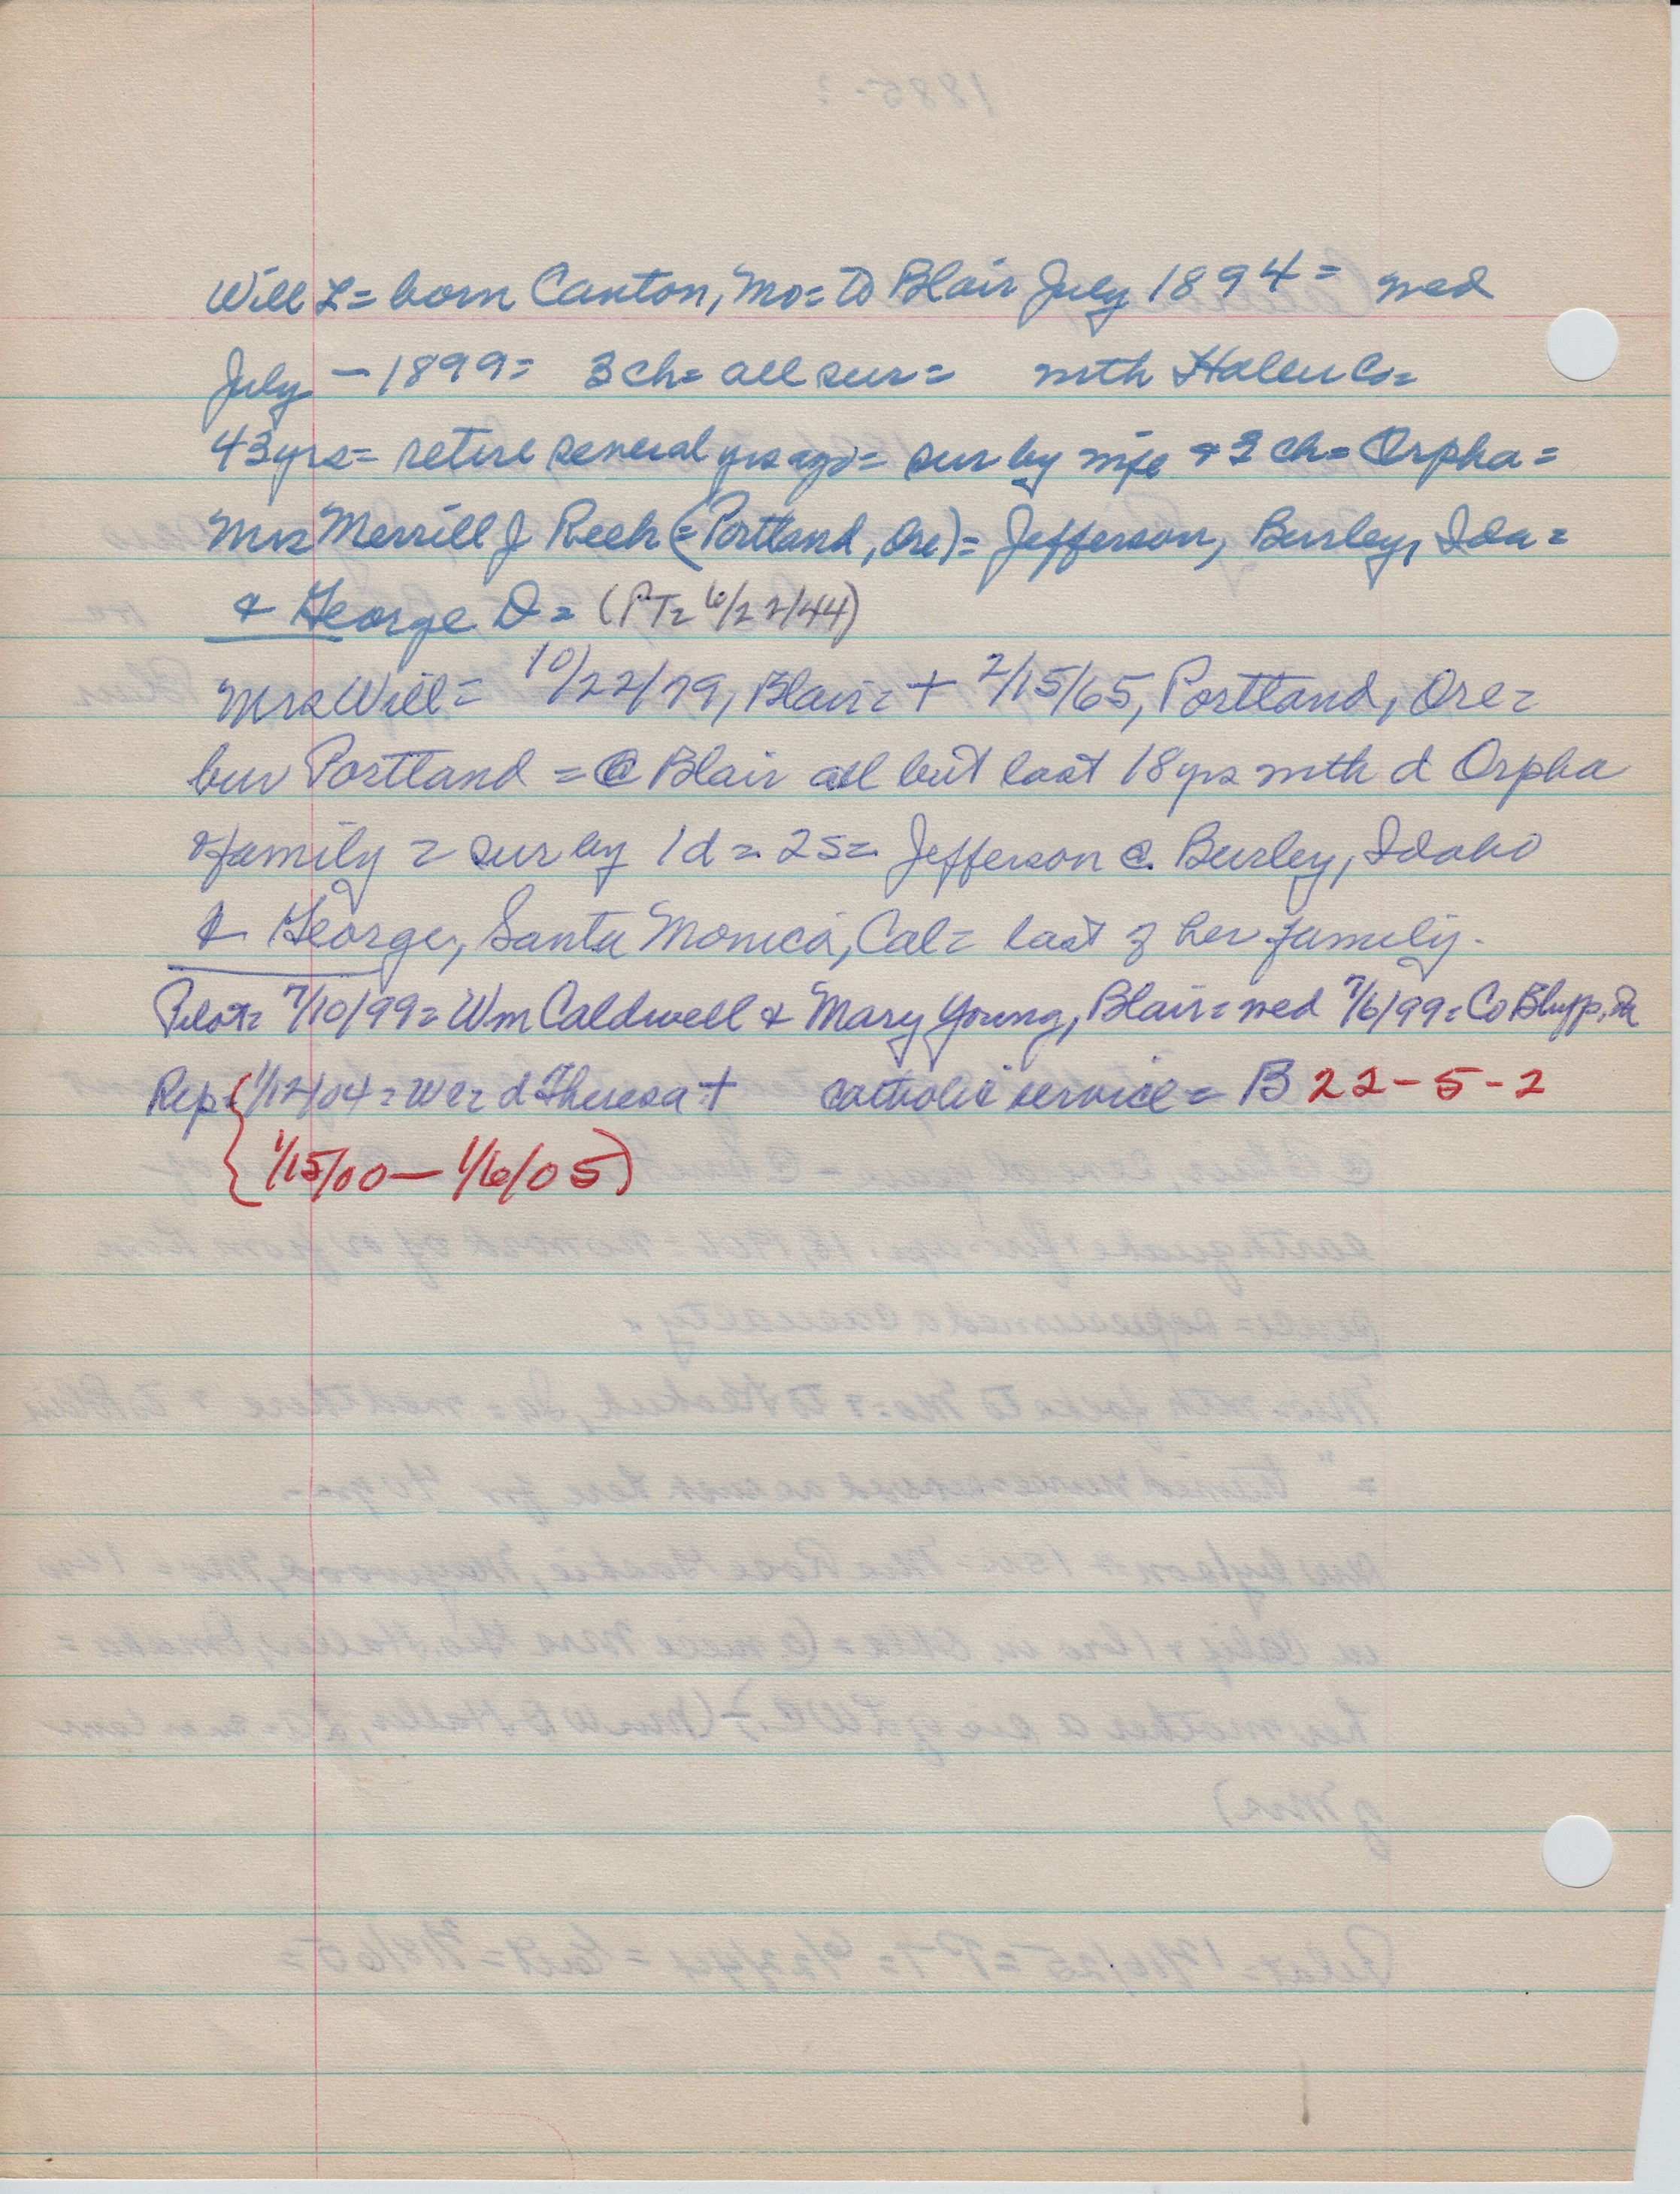 Will L= born Canton, Mo= to Blair July 1894= wed
July - 1899= 3 ch= all sur= with Haller Co=
43 yrs= retire several yrs ago= sur by wife + 3 ch= Orpha=
Mrs Merrill J Reeh (=Portland, Ore)= Jefferson, Burley, Ida=
& George D= (PT= 6/22/44)
Mrs Will= 10/22/79, Blair= + 2/15/65, Portland, Ore=
bur Portland = @ Blair all but last 18 yrs with d Orpha
& family = sur by 1 d = 2 s= Jefferson @ Burley, Idaho
& George, Santa Monica, Cal= last of her family.
Pilot= 7/10/99= Wm Caldwell & Mary Young, Blair= wed 7/6/99= Co Bluffs, Ia
Rep= 1/12/04= d Theresa + catholic service= B 22-5-2
{1/15/00 — 1/6/05)